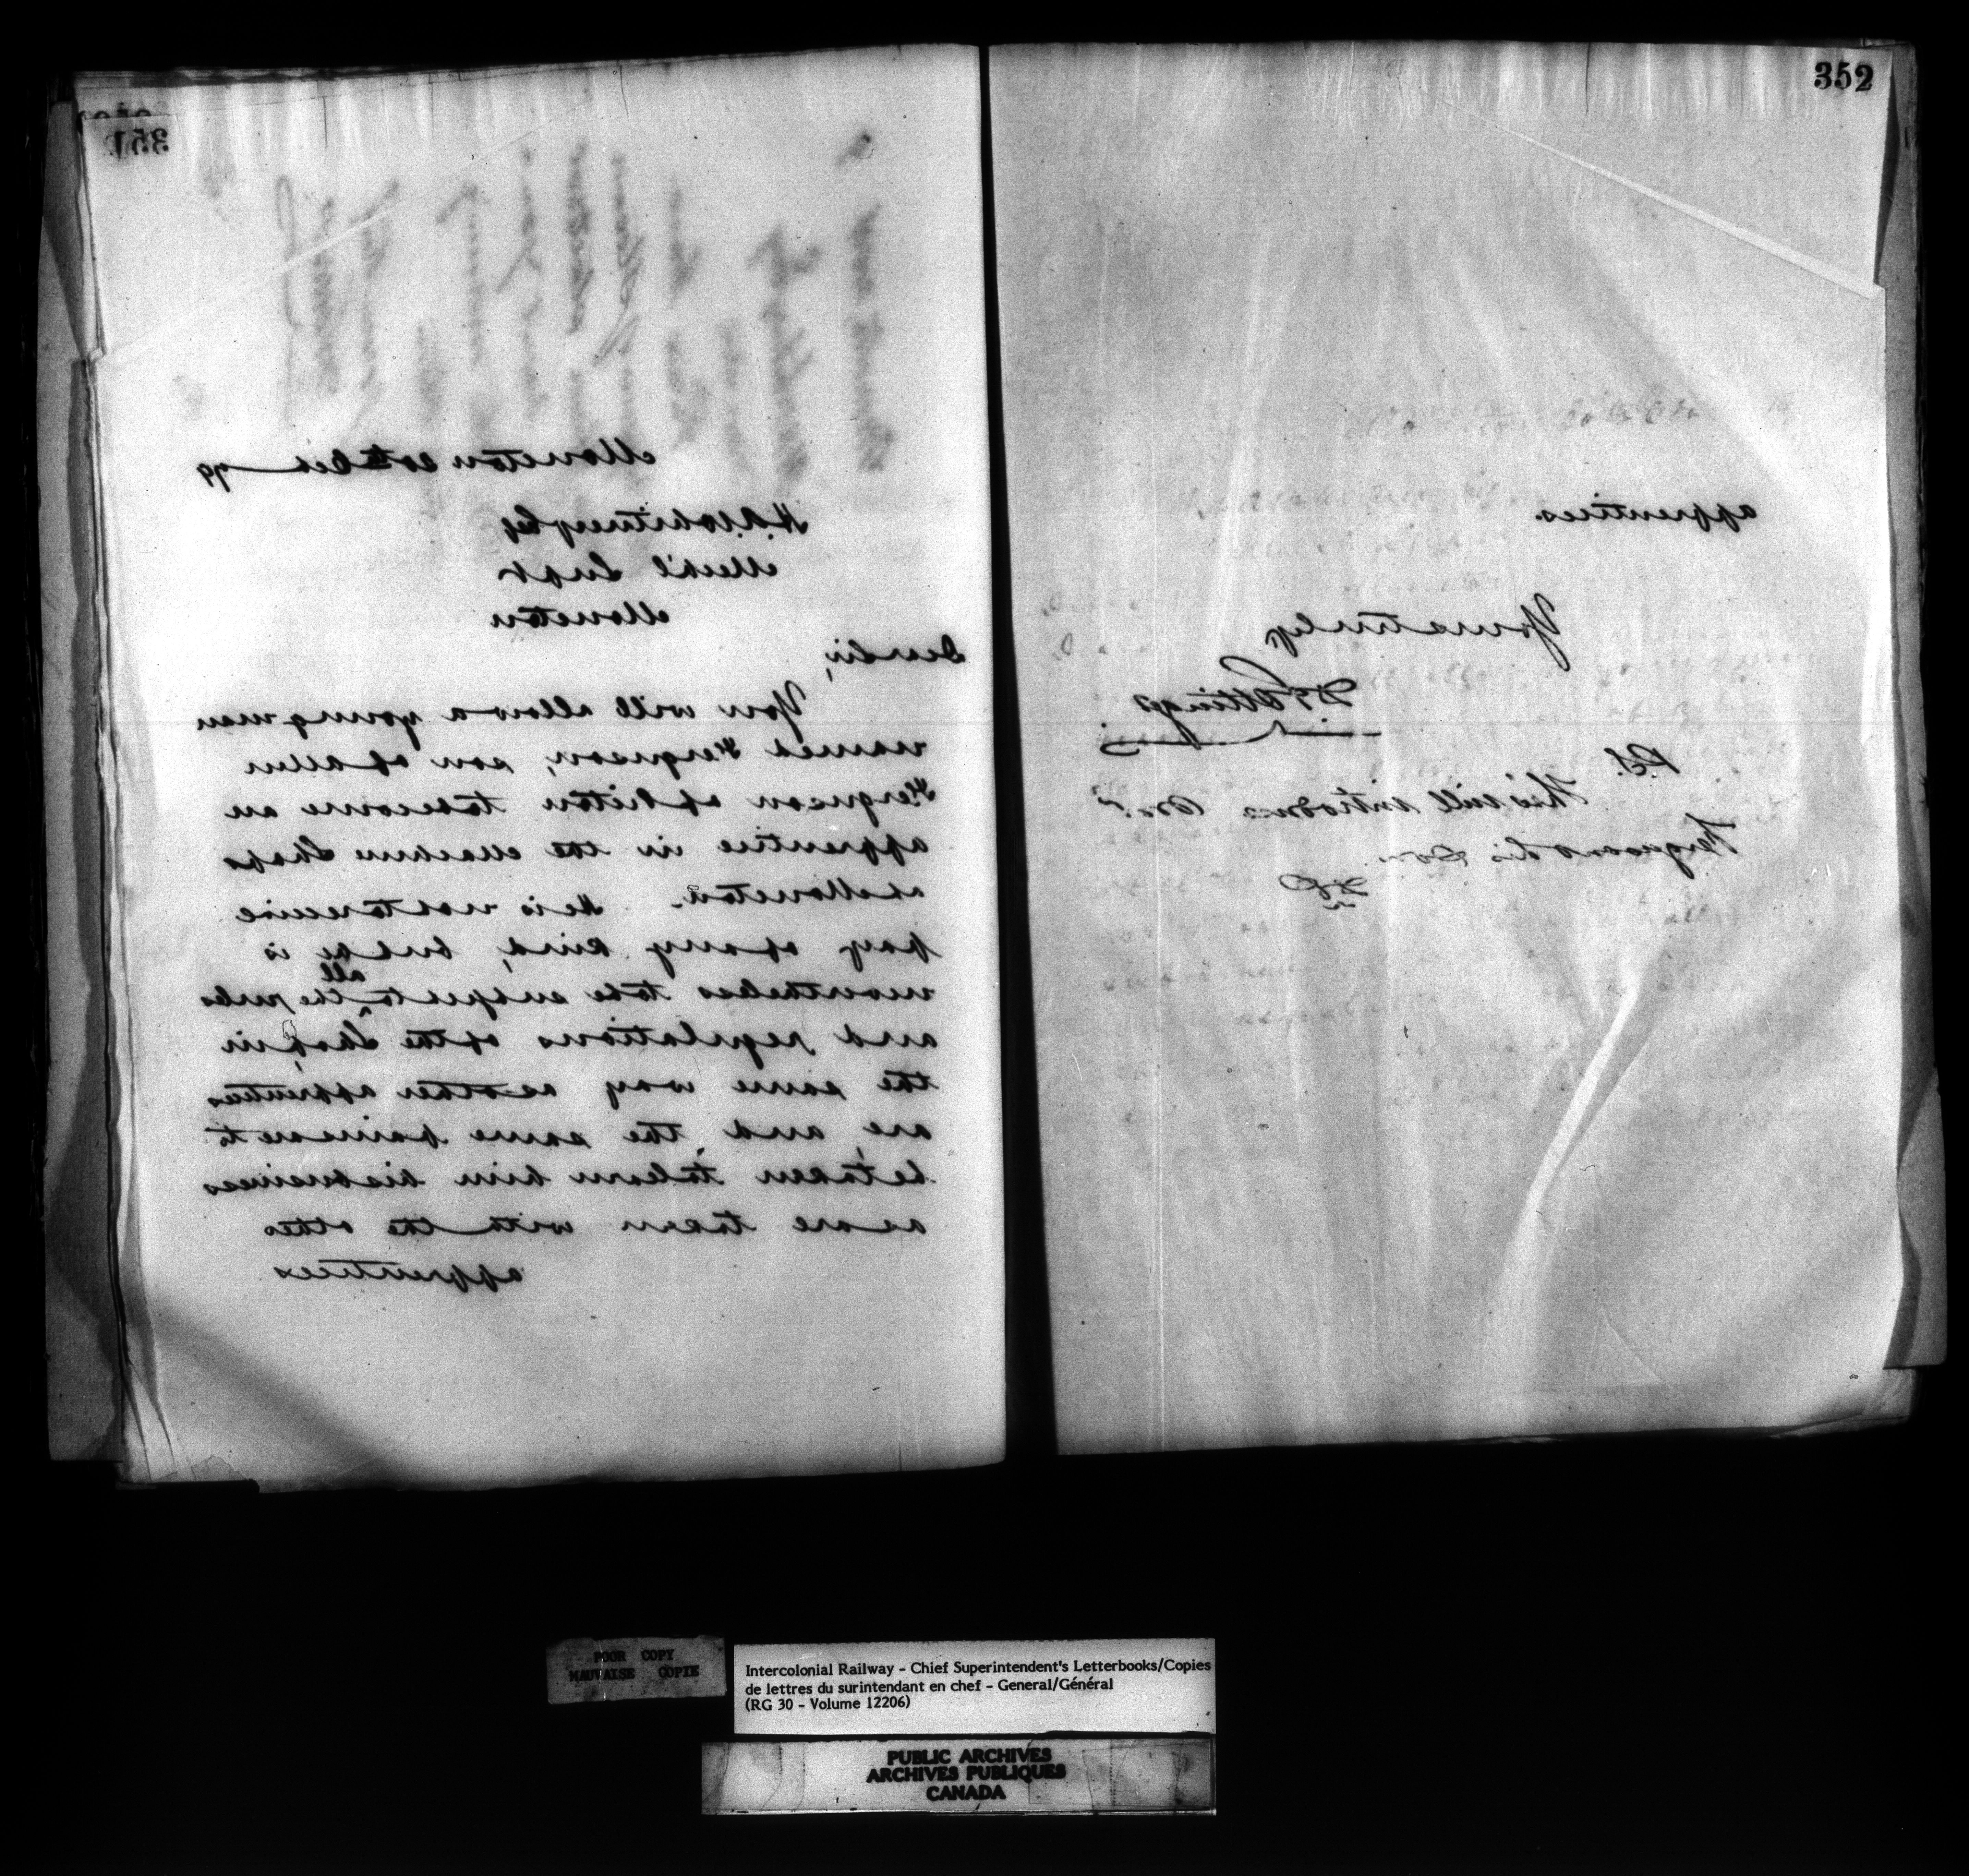 351
Moncton 20th Dec 79
H.A. Whitney Esq
Mech'l Supt
Moncton
Dear Sir,
You will allow a young man
named Ferguson, son of
Ferguson of Pictou to become an
apprentice in the Machine Shops
at Moncton. He is not to receive
pay of any kind, but he is
nevertheless to be subject to all the rules
and regulations of the Shop, in
the same way as other apprentices
are, and the same pains are to
be taken to learn him his business
as are taken with the other
apprentices
352
apprentices.
Yours truly
D Pottinger
P.S.
This will introduce Mr
Ferguson & his Son.
DP
POOR COPY
MAUVAISE COPIE
Intercolonial Railway - Chief Superintendent's Letterbooks/Copies
de lettres du surintendant en chef - General/Général
(RG 30 - Volume 12206)
PUBLIC ARCHIVES
ARCHIVES PUBLIQUES
CANADA